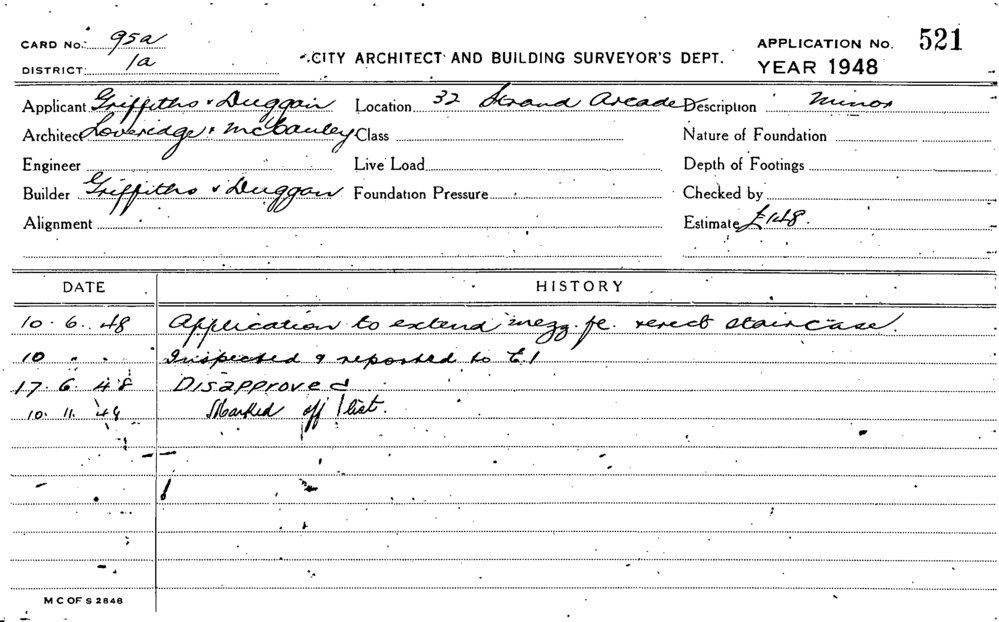 CARD No. 95a
DISTRICT 1a
CITY ARCHITECT AND BUILDING SURVEYOR'S DEPT.
APPLICATION No. 521
YEAR 1948
Applicant Griffiths & Duggan Location 32 Strand Arcade Description Minor
Architect Loveridge & McCauley Class Nature of Foundation
Engineer Live Load Depth of Footings
Builder Griffiths & Duggan Foundation Pressure Checked by
Alignment Estimate £148.
DATE HISTORY
10.6.48 Application to extend mezz. fl. & erect staircase.
10 " " Inspected & reported to E.1
17.6.48 Disapproved
10.11.49 Marked off list.
M C OF S 2848